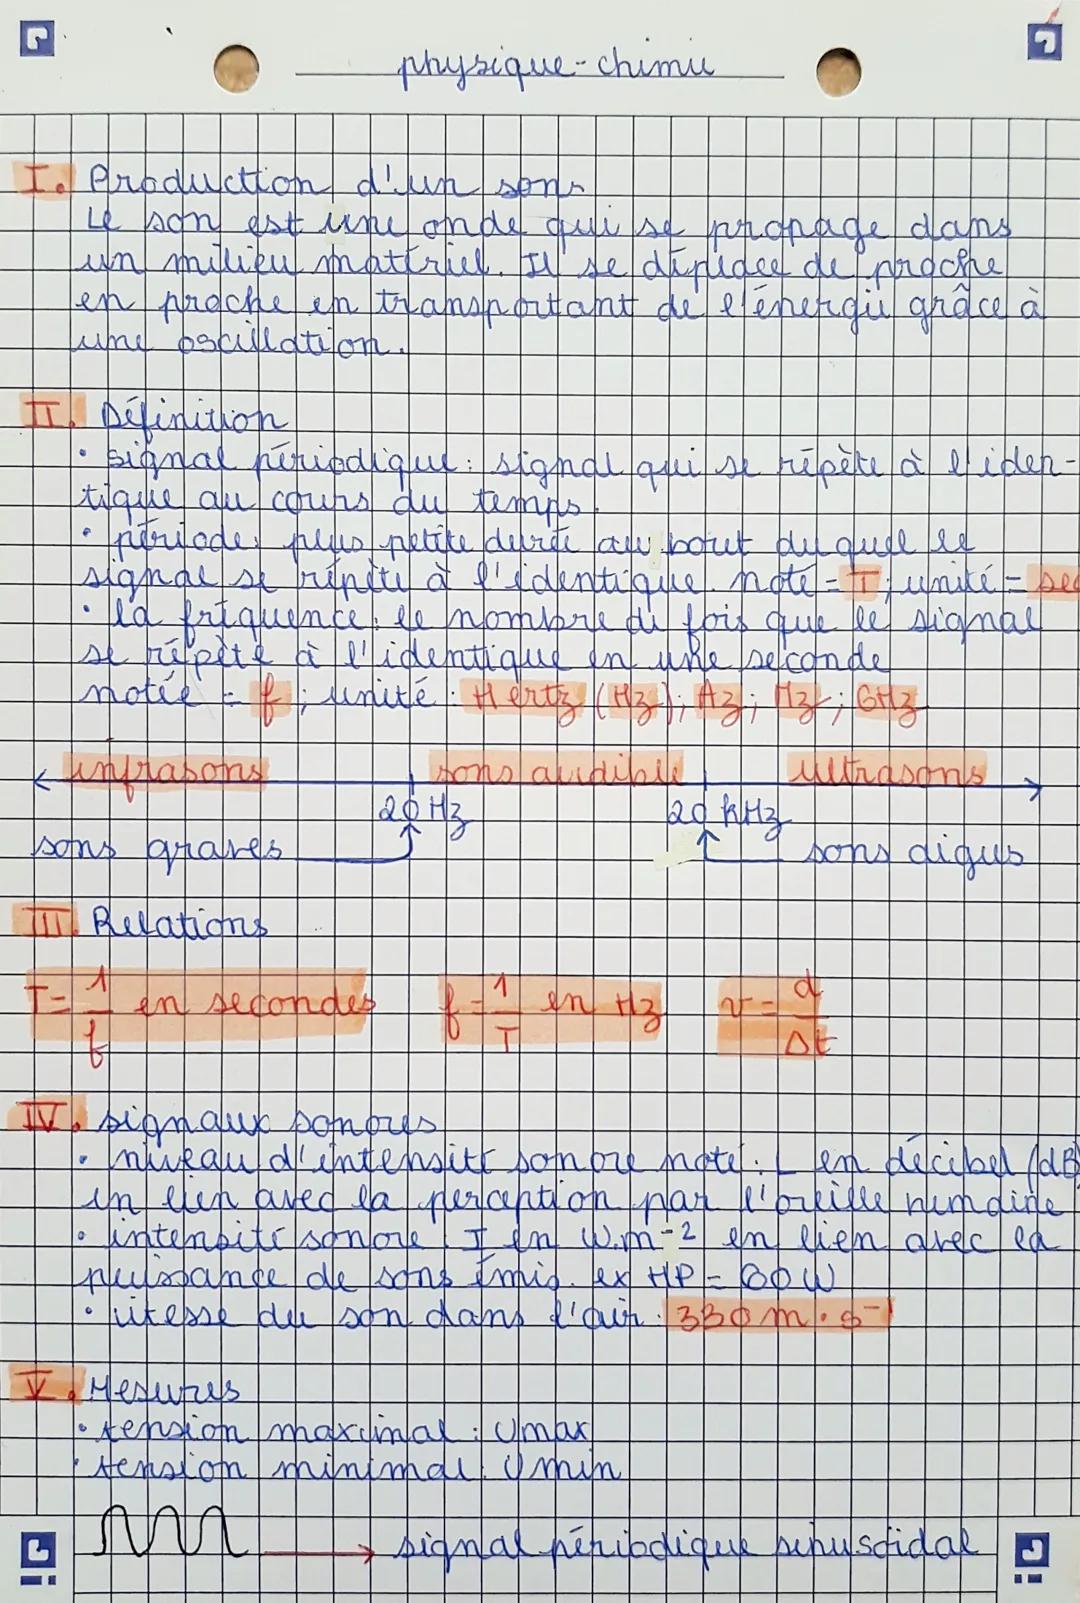 physique-chimie
I. Production d'un sons
Le son est une onde qui se propage dans
un milieu matériel. Il se déplace de proche
en proche en transportant de l'énergie grâce à
une oscillation.
II. Définition
• signal périodique : signal qui se répète à l'iden-
tique au cours du temps.
• période : plus petite durée au bout duquel le
signal se répète à l'identique. noté = T ; unité = sec
• la fréquence : le nombre de fois que le signal
se répète à l'identique en une seconde
notée = f ; unité : Hertz (Hz) ; Hz ; GHz
infrasons sons audible ultrasons
20 Hz 20 kHz
sons graves sons aigus
III. Relations
T = 1/f en secondes f = 1/T en Hz v = d/Δt
IV. signaux sonores
• niveau d'intensité sonore noté : L en décibel (dB)
en lien avec la perception par l'oreille humaine
• intensité sonore I en W.m-2 en lien avec la
puissance de sons émis. ex HP = W
• vitesse du son dans l'air : 330 m.s-1
V. Mesures
• tension maximal : Umax
• tension minimal : Umin
signal périodique sinusoïdal